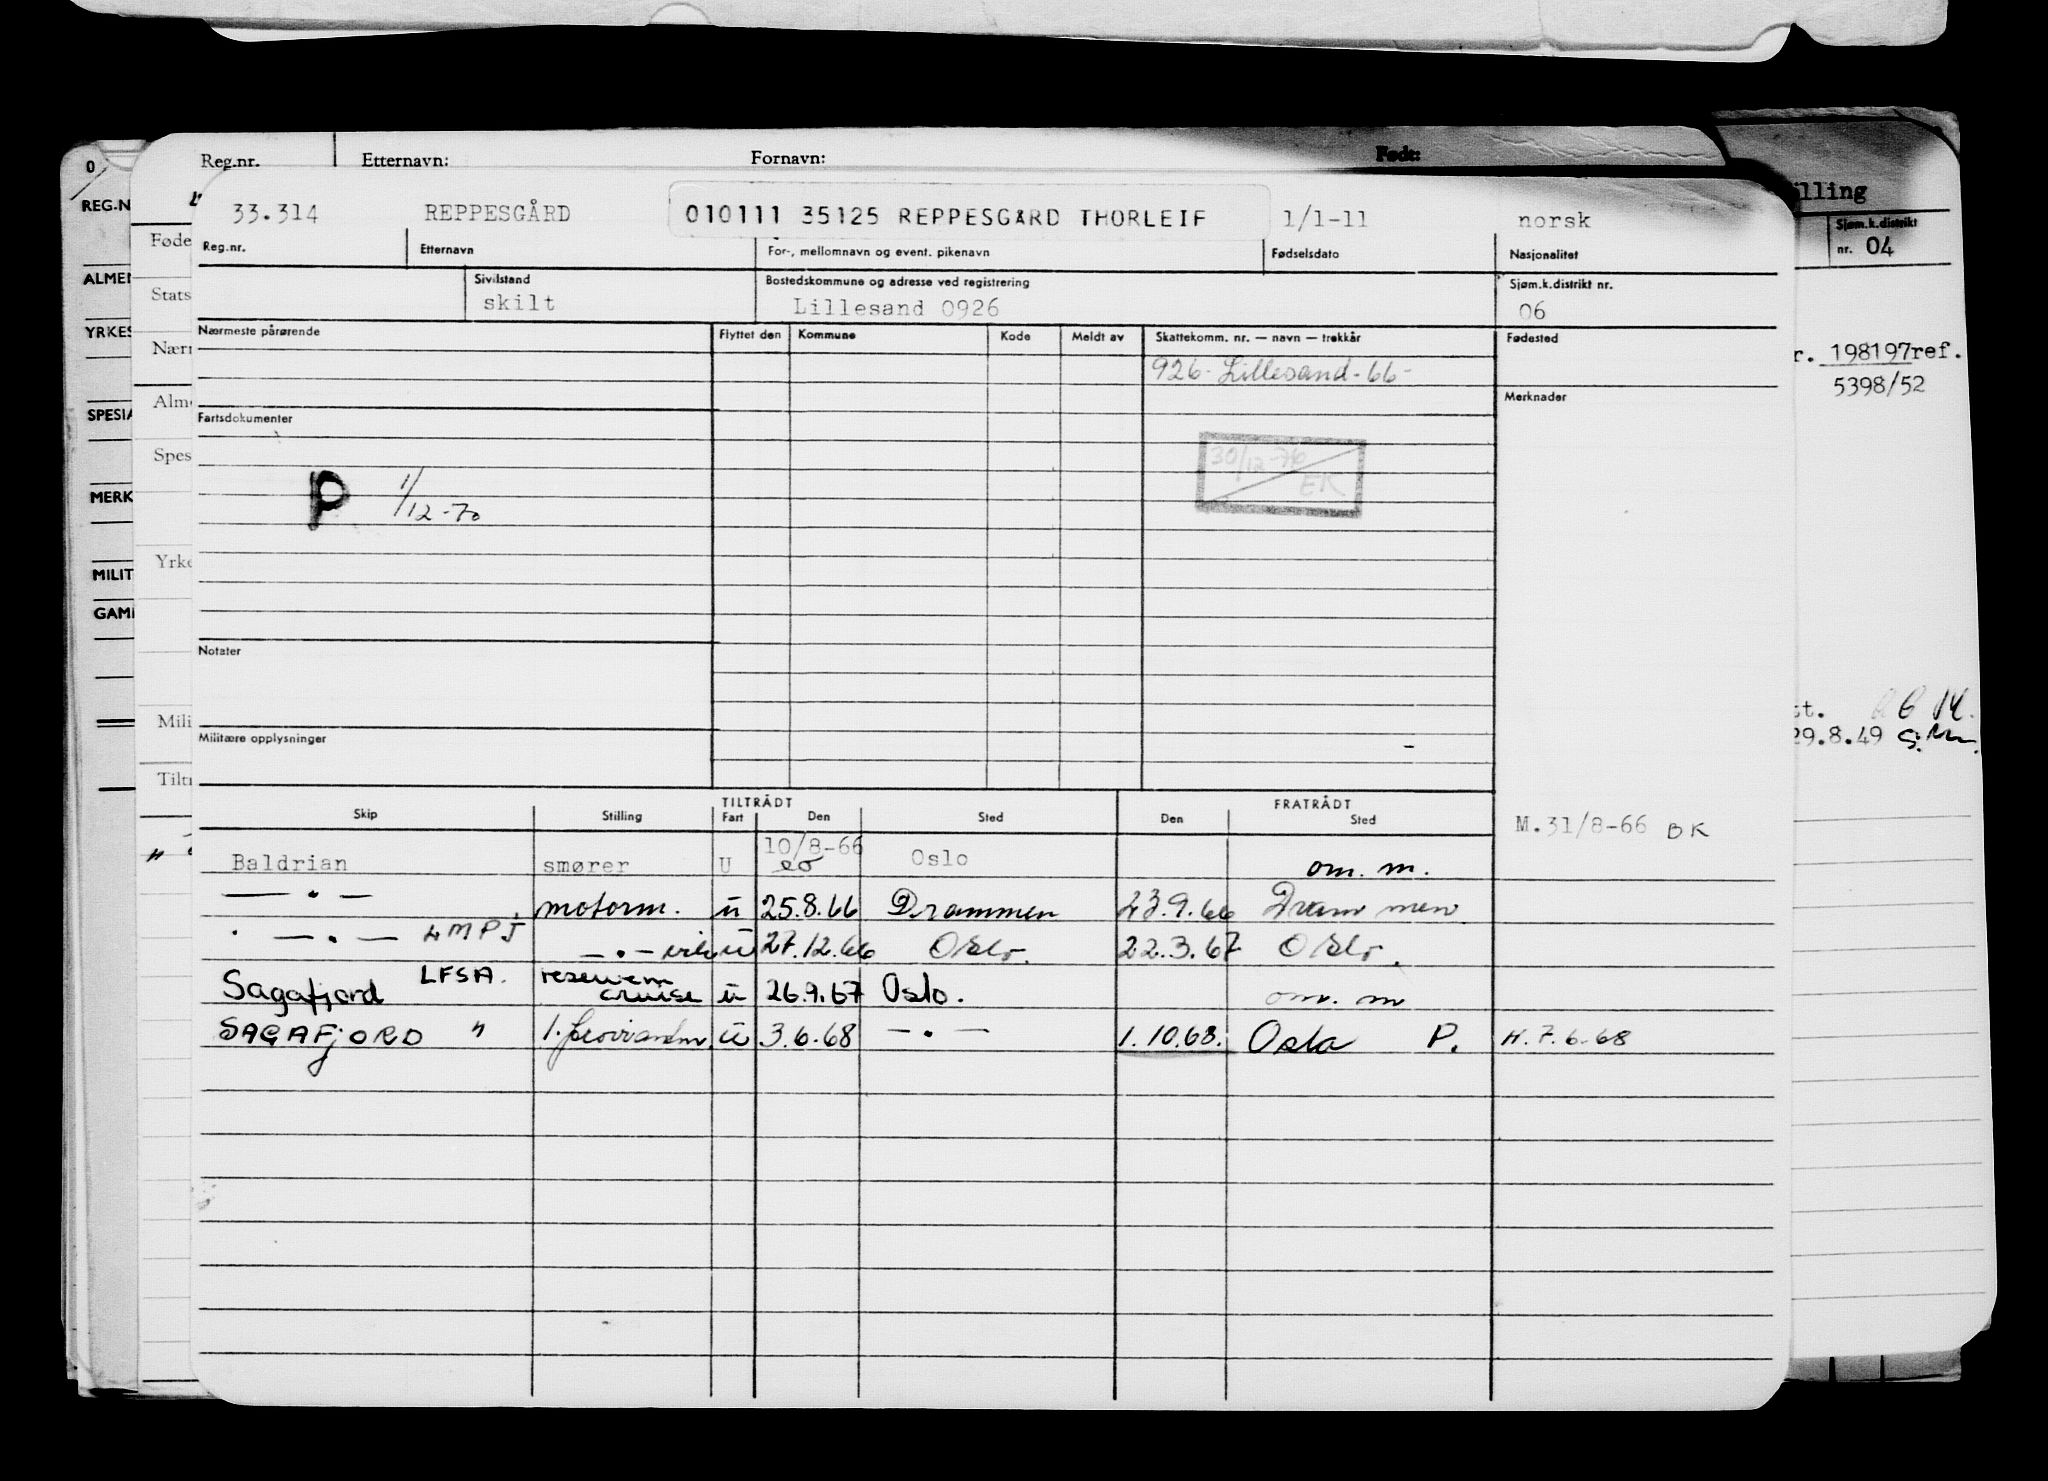 Reg.nr. Etternavn: Fornavn: Født:
0
REG.N
ALMEN
YRKES
SPESIA
MERK
MILIT
GAM
Føde
Stats
Nærr
Alme
Spes
Yrke
Mili
Tiltr
33.314 REPPESGÅRD 010111 35125 REPPESGÅRD THORLEIF 1/1-11 norsk
Reg.nr. Etternavn For-, mellomnavn og event. pikenavn Fødselsdato Nasjonalitet
Sivilstand Bostedskommune og adresse ved registrering Sjøm.k.distrikt nr.
skilt Lillesand 0926 06
Nærmeste pårørende Flyttet den Kommune Kode Meldt av Skattekomm. nr. — navn — trekkår Fødested
926- Lillesand-66-
Merknader
Fartsdokumenter
30/12-76
ER
P 1/12-70
Notater
Militære opplysninger
Skip Stilling TILTRÅDT Fart Den Sted FRATRÅDT Den Sted
M.31/8-66 BK
Baldrian smører U 10/8-66 Oslo om. m.
— " — motorm. u 25.8.66 Drammen 23.9.66 Drammen
" — " — LMPJ — " — u 27.12.66 Oslo. 22.3.67 Oslo.
Sagafjord LFSA. reservem cruise u 26.9.67 Oslo. om. m
SAGAFJORD " 1. u 3.6.68 — " — 1.10.68. Oslo P. H.7.6-68
illing
Sjøm.k.distrikt
nr. 04
r. 198197ref.
5398/52
st.
29.8.49